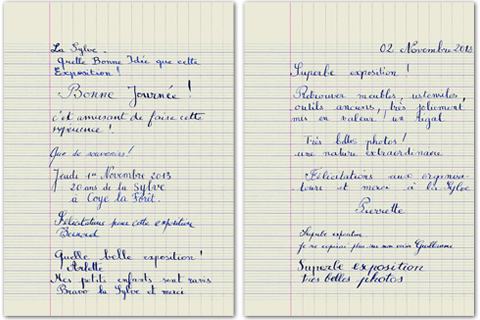 La Sylve.
Quelle Bonne Idée que cette
Exposition !
Bonne Journée !
c'est amusant de faire cette
Que de souvenirs !
Jeudi 1er Novembre 2013
20 ans de la Sylve
à Coye la Forêt.
Félicitations pour cette exposition
Quelle belle exposition !
Arlette
Mes petits enfants sont ravis
Bravo la Sylve et merci
02 Novembre 2013
Superbe exposition !
Retrouver meubles, ustensiles,
outils anciens, très joliment
mis en valeur, un régal
Très belles photos !
une nature extraordinaire
Félicitations aux organisa-
teurs et merci à la Sylve
Pierrette
Superbe exposition
je ne copierai plus sur mon voisin Guillaume
Superbe exposition
très belles photos